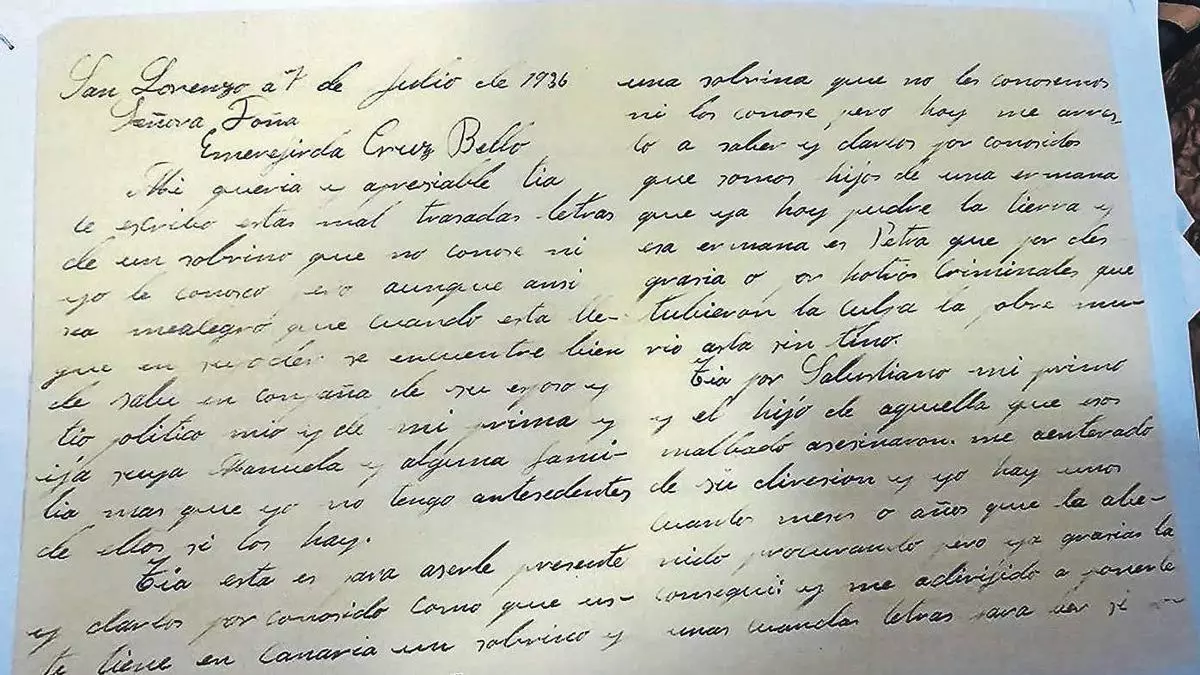 San Lorenzo a 7 de Julio de 1936
Señora Doña
Emerejirda Cruz Bello
Mi queria y apresiable tia
le escribo estas mal trasadas letras
de un sobrino que no conose ni
yo le conosco pero aunque ansi
sea mealegró que cuando esta lle-
gue en su poder se encuentre bien
de salu en conpaña de su esposo y
tio politico mio y de mi prima y
ija suya Manuela y alguna fami-
lia mas que yo no tengo antesedentes
de ellos si los hay.
Tia esta es para aserle presente
y darlos por conosido como que us-
te tiene en Canaria un sobrino y
una sobrina que no les conosemos
ni los conose pero hoy me arres-
to a saber y darlos por conosidos
que somos hijos de una ermana
que ya hoy pudre la tierra y
esa ermana es Petra que por des-
grasia o por hotros Criminales que
tubieron la culpa la pobre mu-
rio asta sin tino.
Tia por Salustiano mi primo
y el hijo de aquella que esos
malbado asesinaron. me aenterado
de su diresion y yo hay unos
cuantos meses o años que la abe-
nido procurando pero ya grasias la
conseguí y me adirijido a ponerle
unas cuandas letras para ver si